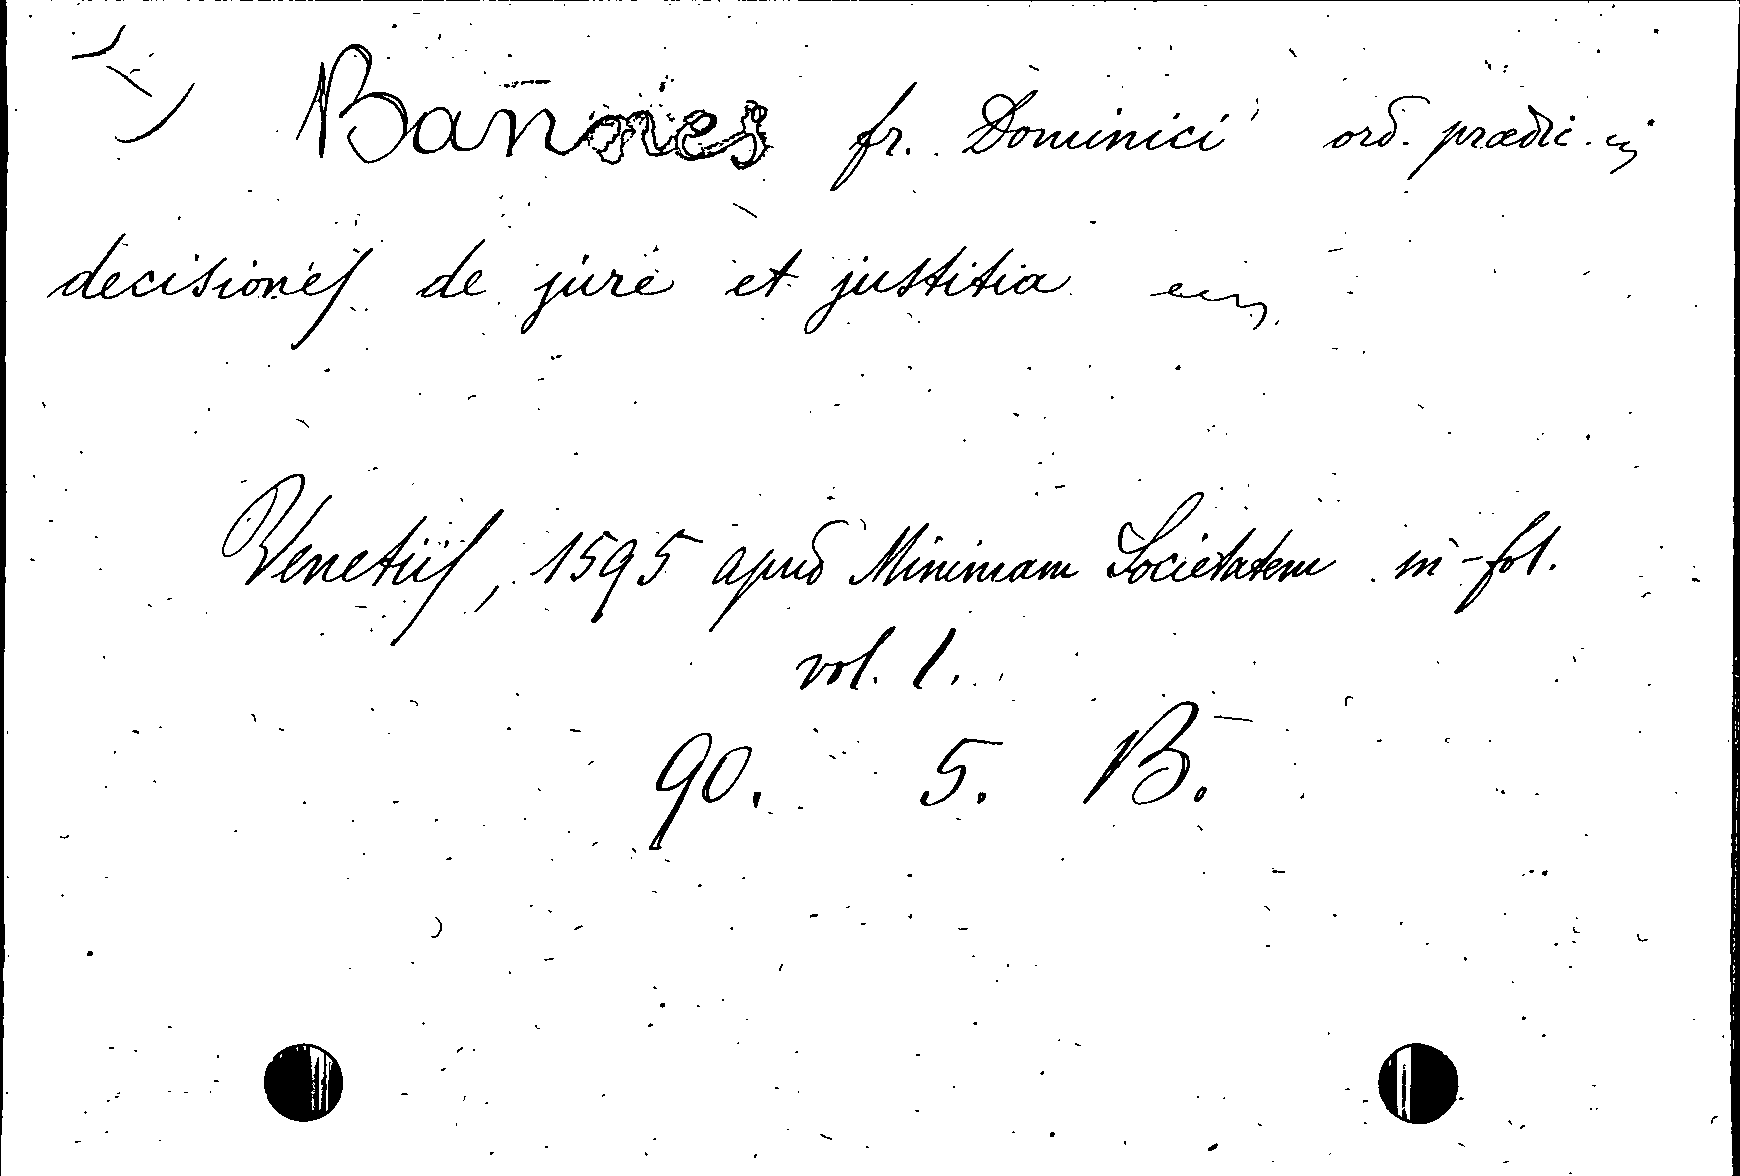 Bannes fr. Dominici ord. prædic.
decisiones de jure et justitia
Venetiis, 1595 apud Minimam Societatem in-fol.
vol. 1.
90. 5. B.